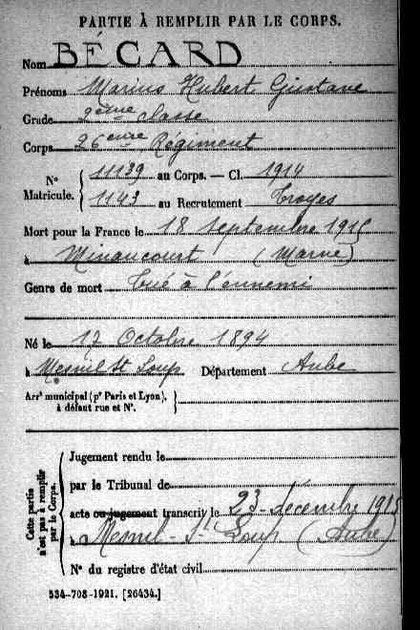 PARTIE À REMPLIR PAR LE CORPS.
Nom BÉCARD
Prénoms Marius Hubert Gustave
Grade 2ème classe
Corps 26ème Régiment
N° Matricule. { 11139 au Corps. — Cl. 1914
1143 au Recrutement Troyes
Mort pour la France le 18 Septembre 1915
à Minaucourt (Marne)
Genre de mort Tué à l'ennemi
Né le 12 Octobre 1894
à Mesnil St Loup Département Aube
Arrt municipal (pr Paris et Lyon), à défaut rue et N°. }
Cette partie n'est pas à remplir par le Corps. {
Jugement rendu le
par le Tribunal de
acte ou jugement transcrit le 23 décembre 1915
à Mesnil-St-Loup (Aube)
N° du registre d'état civil
534-708-1921. [26434.]